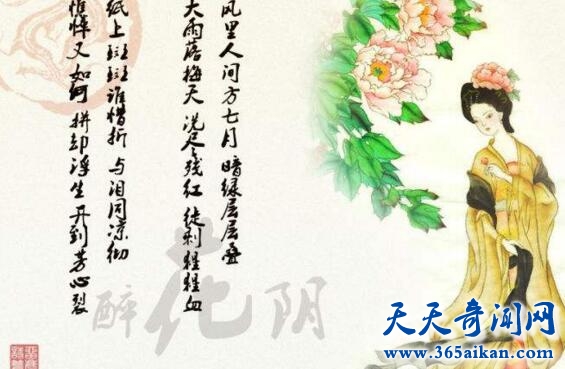 风里人间方七月 暗绿层层叠
大雨落梅天 洗尽残红 徒剩猩猩血
纸上斑斑谁惜折 与泪同凉彻
憔悴又如何 拼却浮生 开到芳心裂
醉花阴
天天奇闻网
www.365aikan.com